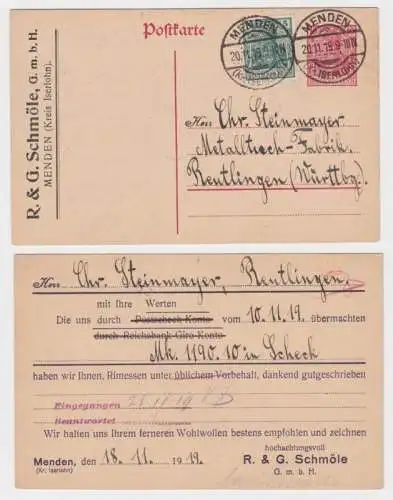 R. & G. Schmöle, G. m. b. H.
MENDEN (Kreis Iserlohn).
Postkarte
MENDEN
20.11.19.9-10V
(Kr. ISERLOHN)
MENDEN
20.11.19.9-10V
(Kr. ISERLOHN)
Herr Chr. Steinmayer
Metalltuch-Fabrik.
Reutlingen (Württbg.)
Herr Chr. Steinmayer, Reutlingen.
mit Ihre Werten
Die uns durch Postscheck-Konto vom 10.11.19. übermachten
durch Reichsbank-Giro-Konto
Mk. 1190.10 in Scheck
haben wir Ihnen, Rimessen unter üblichem Vorbehalt, dankend gutgeschrieben
Eingegangen 25 11 19
Beantwortet
Wir halten uns Ihrem ferneren Wohlwollen bestens empfohlen und zeichnen
hochachtungsvoll
Menden, den 18. 11. 1919. R. & G. Schmöle
(Kr. Iserlohn) G. m. b. H.